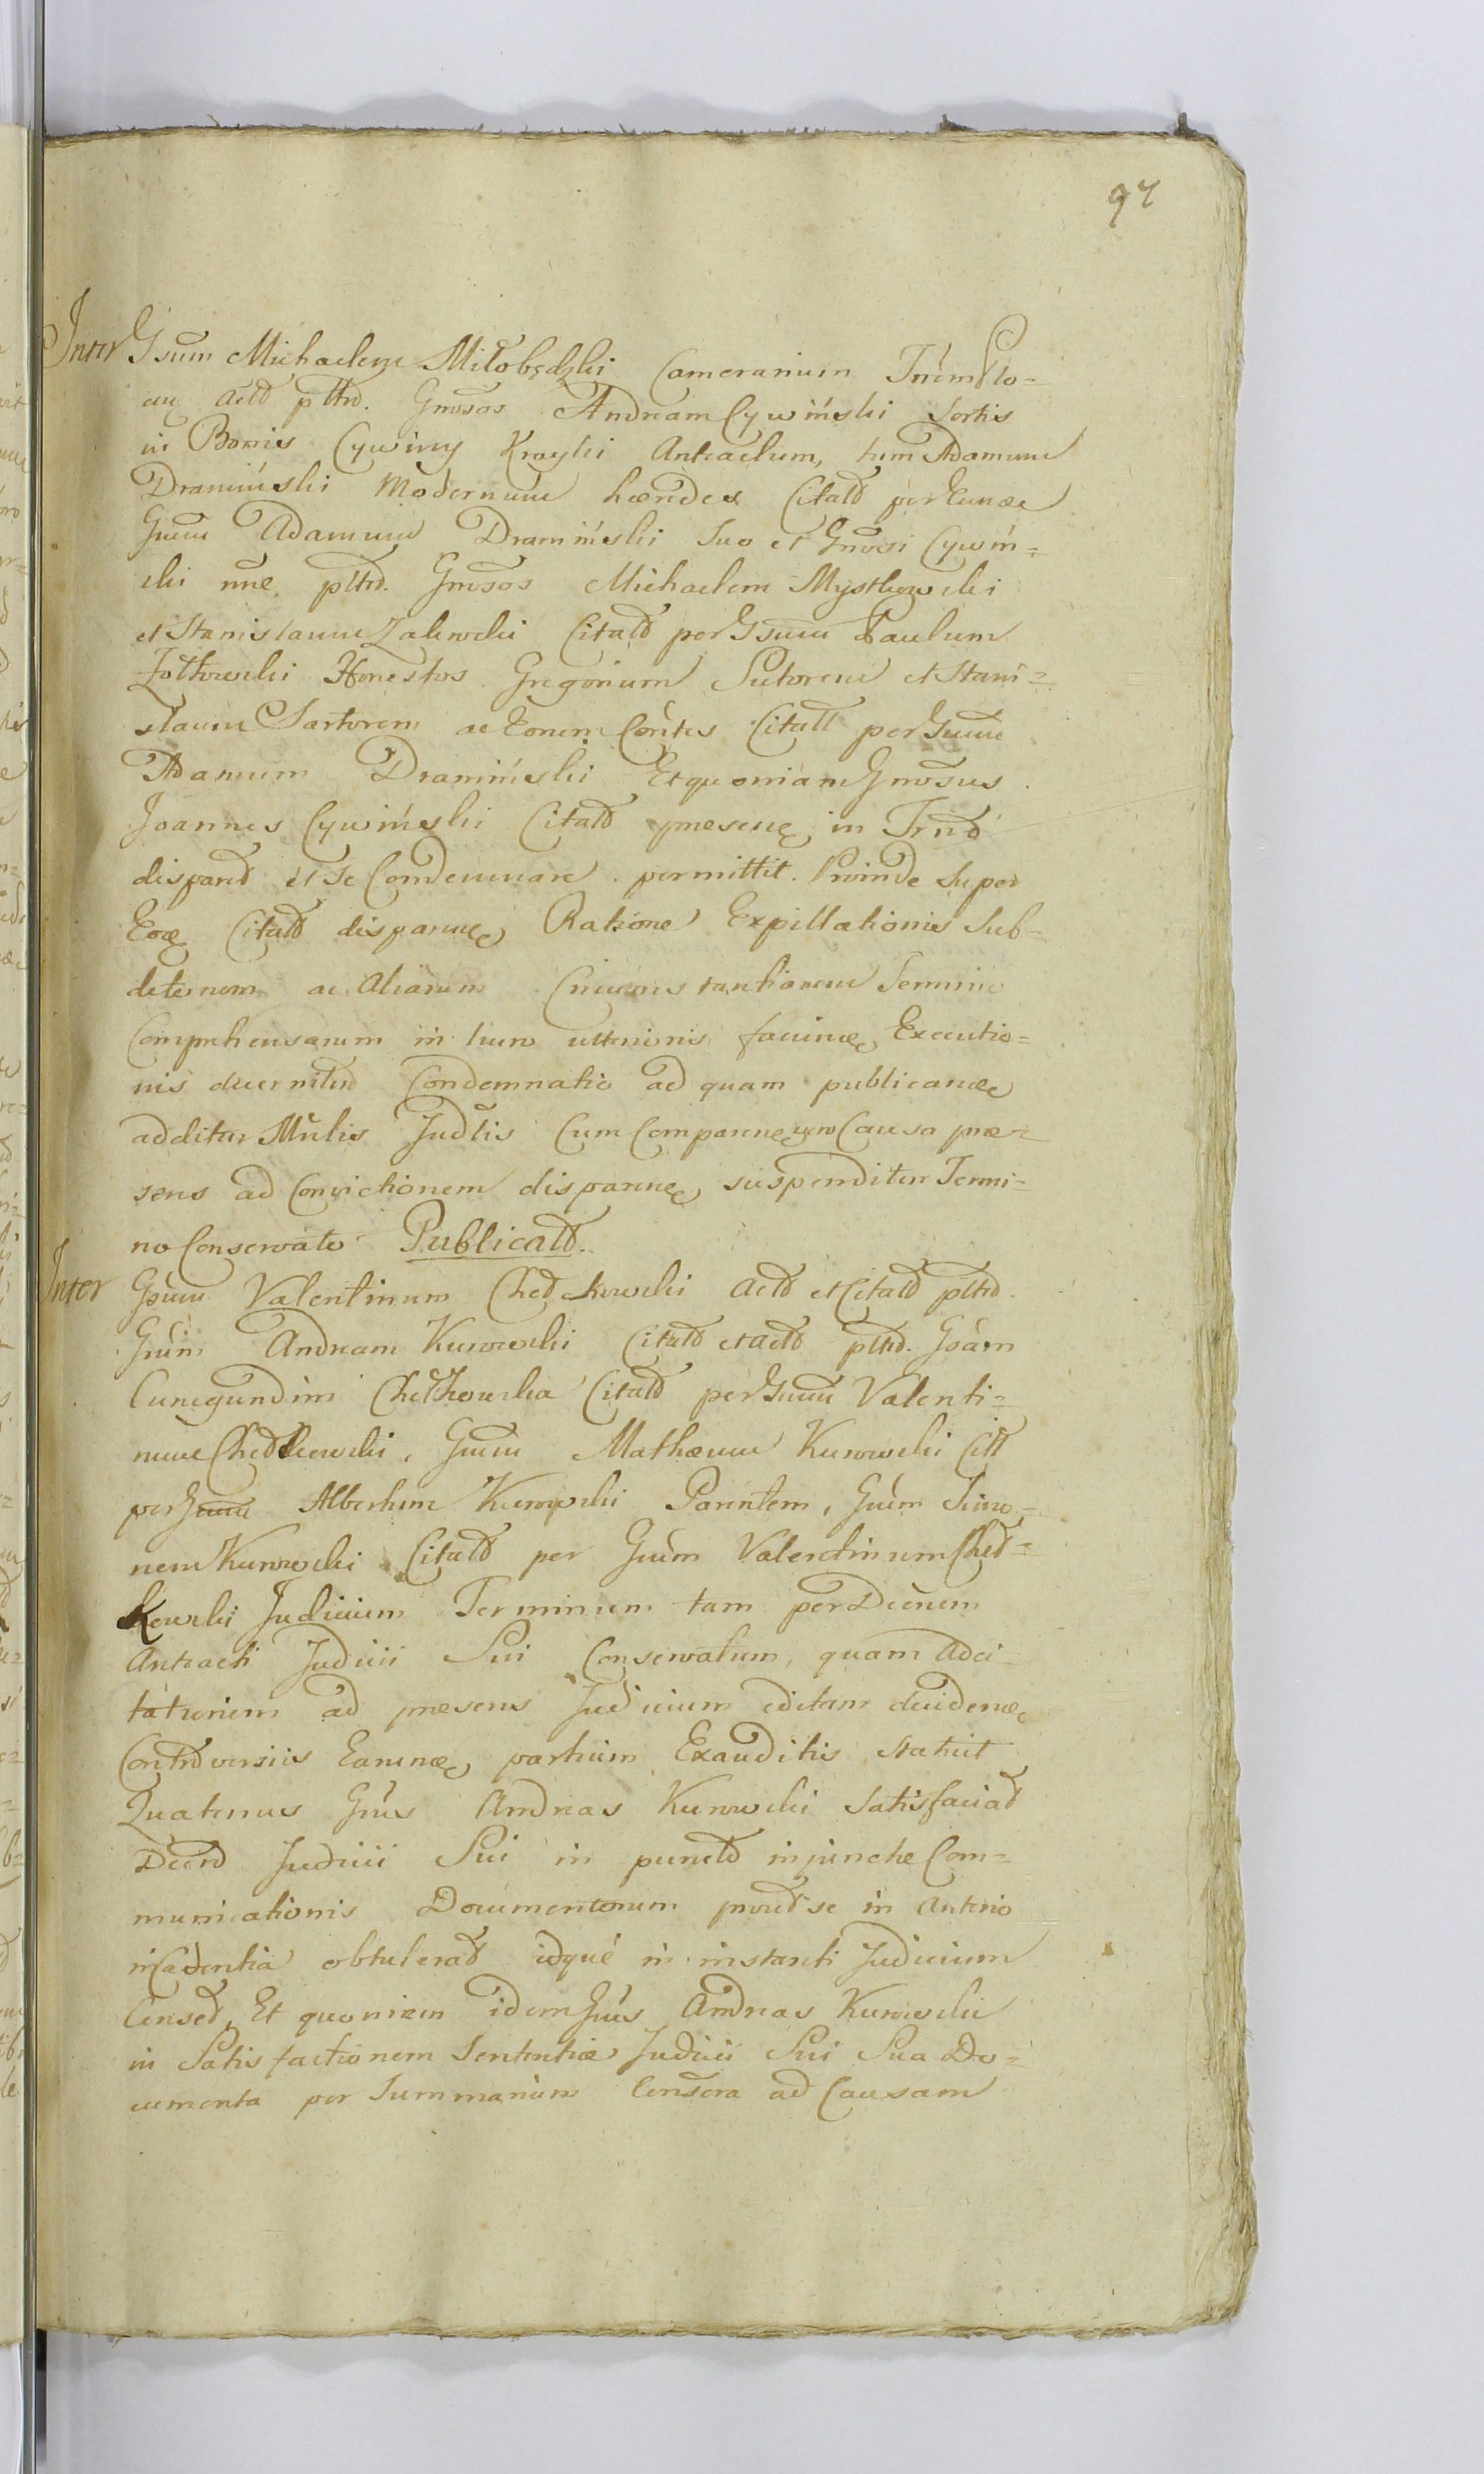 97
Inter Gsum Michaelem Miłobędzki Camerarium Trêm Plo-
cen Actõ pltrõ. Gnosos Andream Cywiński Sortis
in Bonis Cywiny Krayki Anteactum, tum Adamum
Dramiński Modernum hæredes Citatõ per
Gnum Adamum Dramiński Suo et Gnosi Cywiń=
ski nñe pltrõ. Gnosos Michaelem Mystkowski
et Stanislaum Zalewski Citatõ per Gsum Paulum
Zołtowski Honestos Gregorium Sutorem et Stani=
slaum Sartorem ac Eorum Citatt per Gnum
Adamum Dramiński Et quoniam Gnosus
Joannes Cywiński Citatõ in
disparet et Se Condemnare permittit. Proinde Super
Citatõ disparen Ratione Expillationis Sub=
ac Aliarum Circumstantiarum Termino
Comprehensarum in lucro ulterioris faciend Executio=
nis decernitur Condemnatio ad quam publicand
additur Mnlis Judlis Cum Comparen vero Causa præ=
sens ad Convictionem disparen suspenditur Termi=
no Conservato Publicatõ.
Inter Gsum Valentinum Chedkowski Actõ et Citatõ pltrõ.
Gnum Andream Kurowski Citatõ et Actõ pltrõ. Gsam
Cunegundim Chedkowska Citatõ per Gnum Valenti=
num Chedkowski, Gnum Mathæum Kurowski Citt
per Gnum Albertum Kurowski Parentem, Gnum Simo=
nem Kurowski Citatõ per Gnum Valentinum Ched=
kowski Judicium Terminum tam per Decrem
Anteacti Judicii Sui Conservatum, quam Adci=
tationem ad præsens Judicium editam decidend
Controversiis Earund partium Exauditis statuit
Quatenus Gnus Andreas Kurowski Satisfaciat
Decrõ Judicii Sui in punctõ injunctæ Com=
municationis Documentorum prout se in Anterio
incadentia obtulerat idque in instanti Judicium
Censet, Et quoniam idem Gnus Andreas Kurowski
in Satisfactionem Sententiæ Judicii Sui Sua Do=
cumenta per Summarium Censera ad Causam